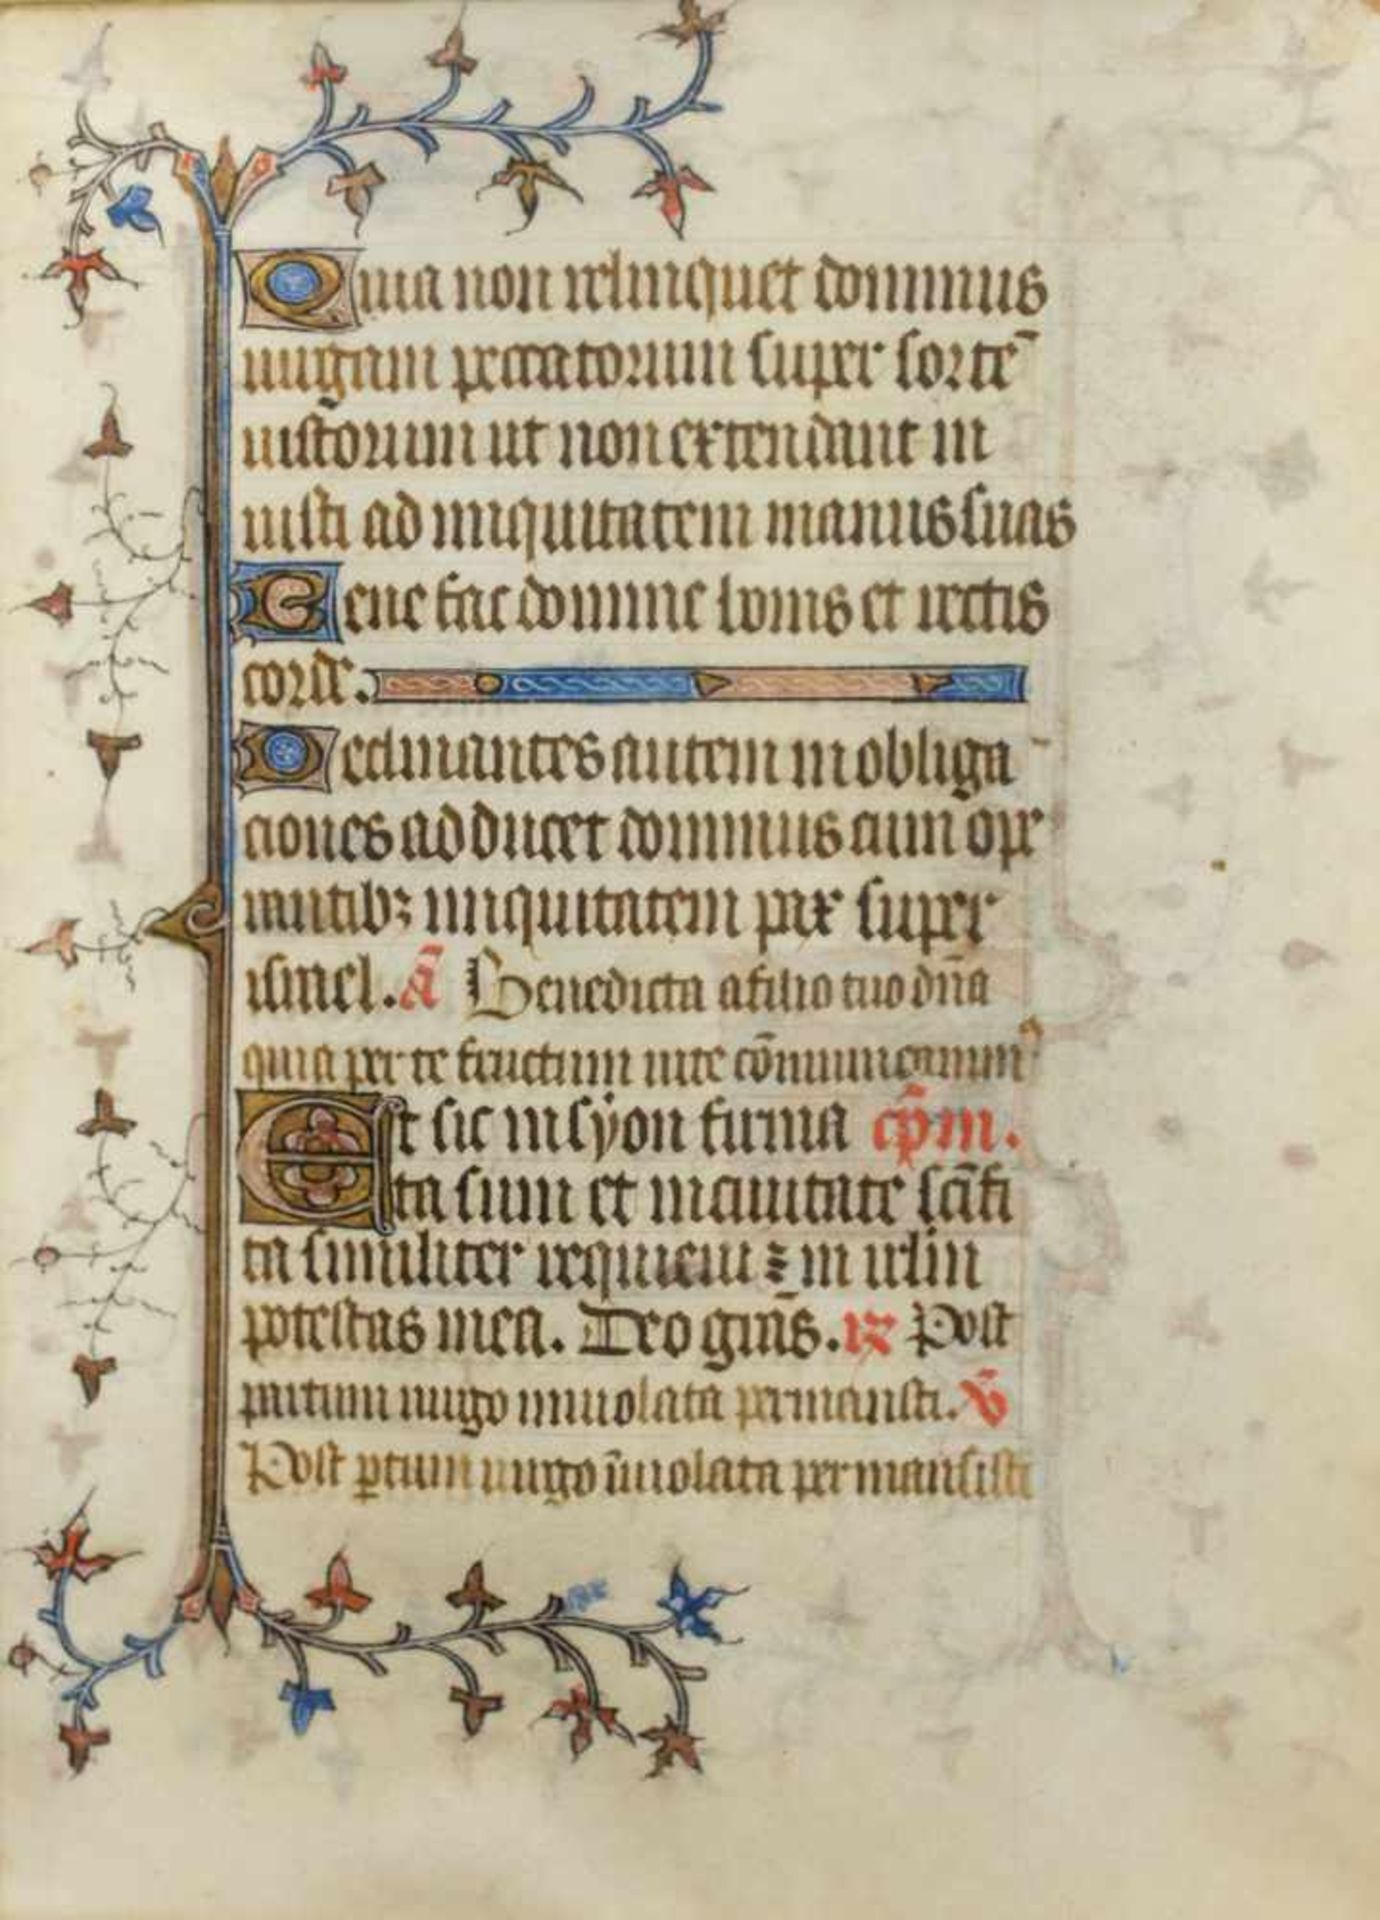 Quia non relinquet dominus
uirgam peccatorum super sortē
iustorum ut non extendant iu
iusti ad iniquitatem manus suas
Bene fac domine bonis et rectis
corde.
Declinantes autem in obliga
ciones adducet dominus cum ope
rantibꝫ iniquitatem pax super
israel. añ Benedicta a filio tuo dña
quia per te fructum uite cōmunicamꝰ
Et sic in syon firma cp̄m.
ta sum et in ciuitate scīfi
ta similiter requieui ⁊ in irlm
potestas mea. Deo grās. ℟ Post
partum uirgo inuiolata permansisti. ℣
Post ꝑtum uirgo īuiolata permansisti